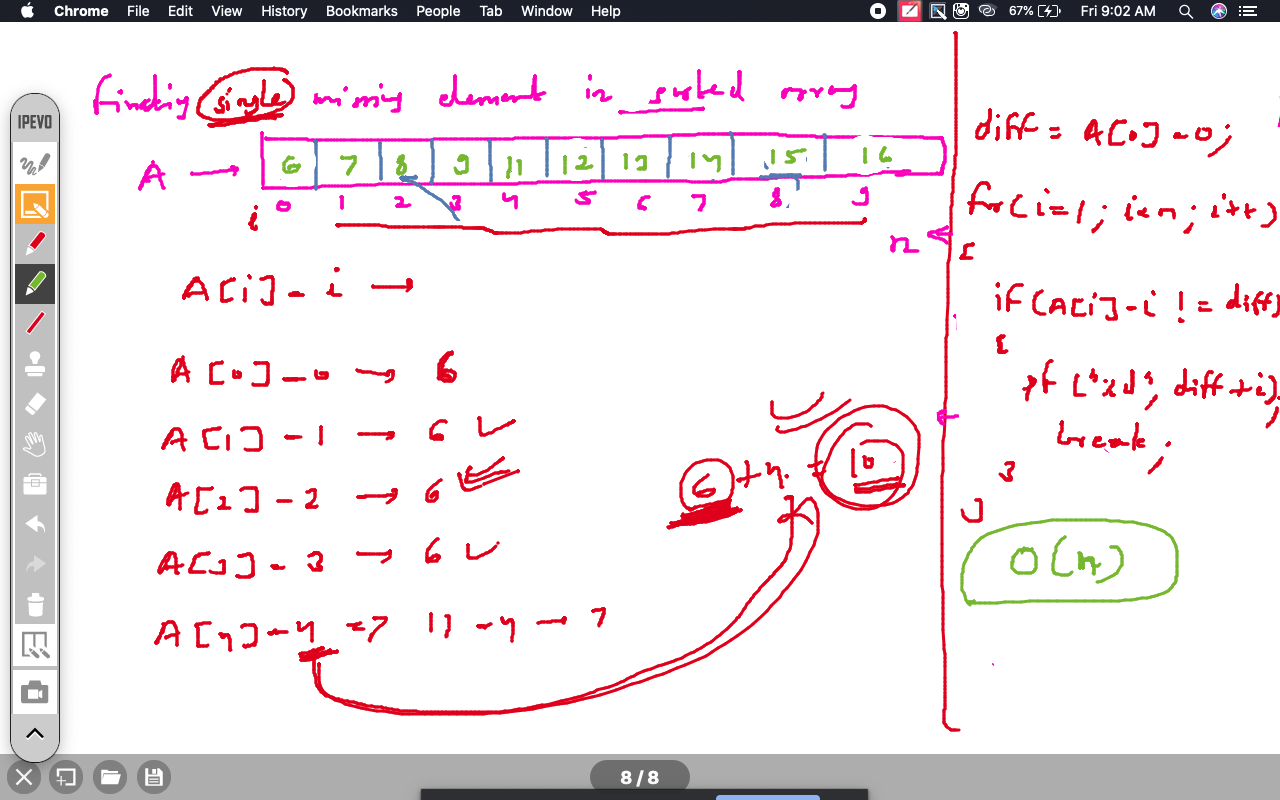 Chrome File Edit View History Bookmarks People Tab Window Help 67% Fri 9:02 AM
IPEVO
finding single missing element in sorted array
A → 6 7 8 9 11 12 13 14 15 16
i 0 1 2 3 4 5 6 7 8 9
n
A[i] - i →
A[0] - 0 → 6
A[1] - 1 → 6
A[2] - 2 → 6
A[3] - 3 → 6
A[4] - 4 = 7 11 - 4 → 7
6 + 4 = 10
diff = A[0] - 0;
for(i=1; i<n; i++)
{
if(A[i] - i != diff)
{
pf("%d", diff+i);
break;
}
}
O(n)
8 / 8